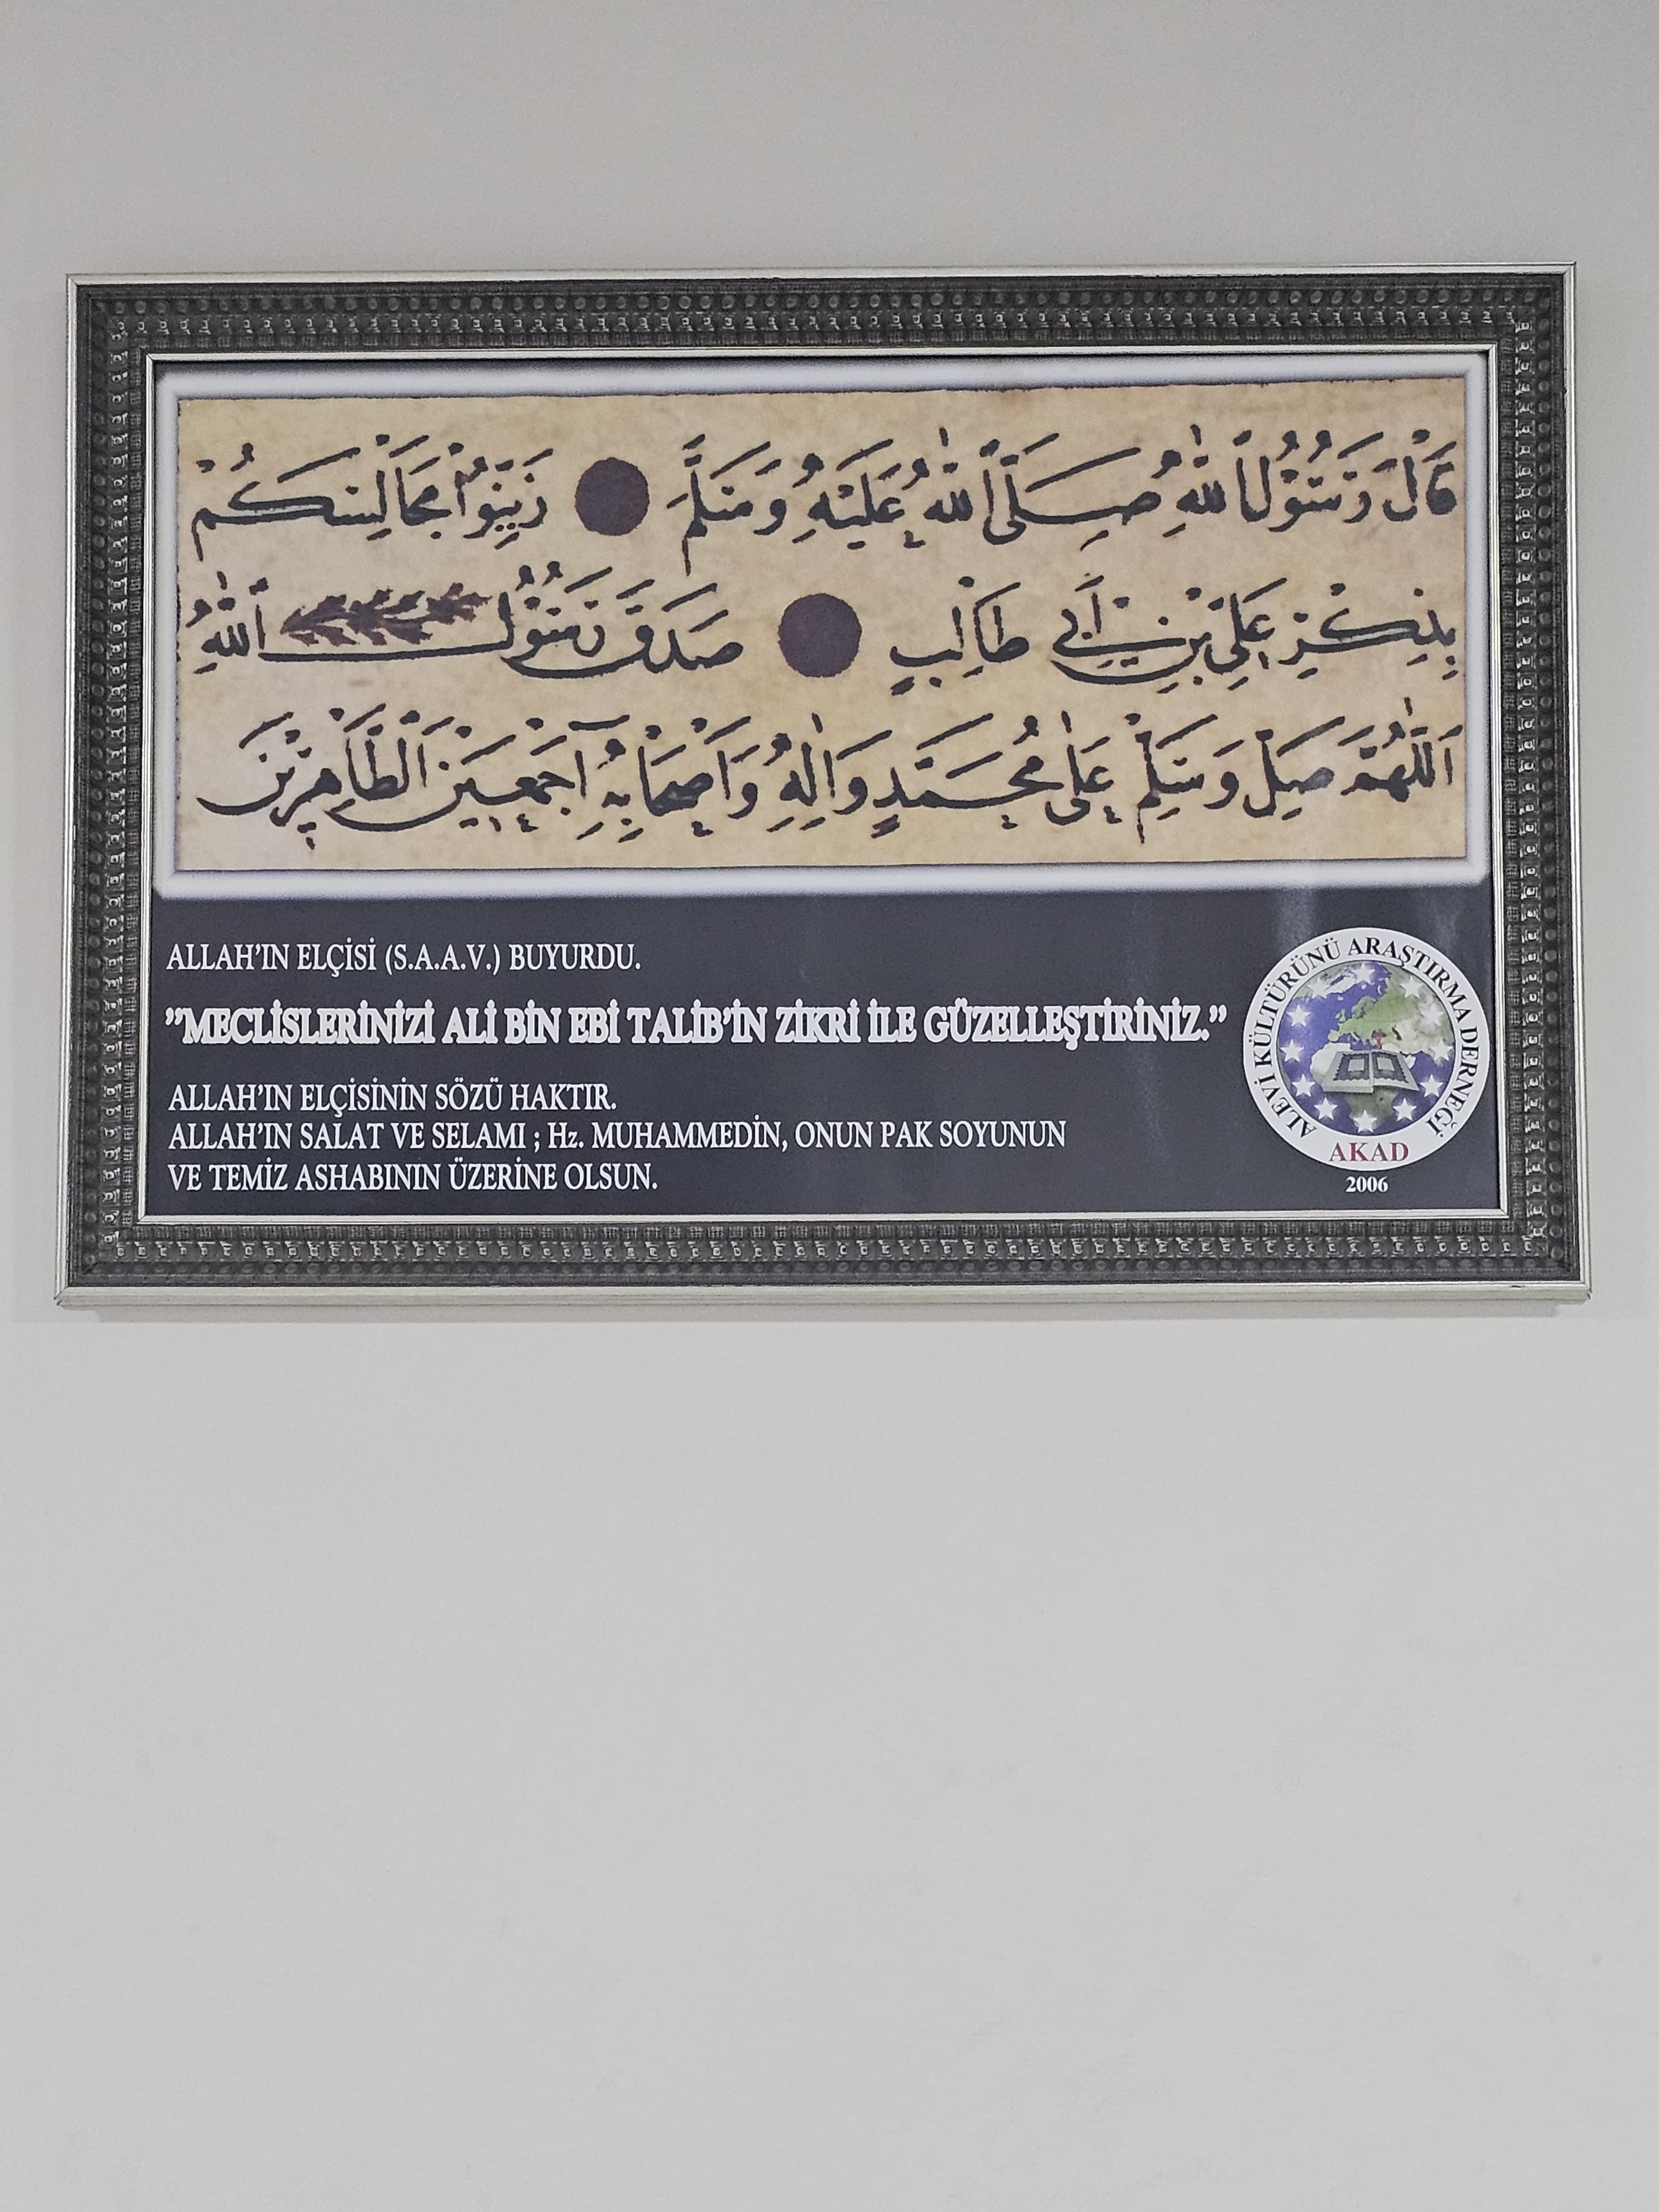 قَالَ رَسُولُ اللهِ صَلَّى اللهُ عَلَيْهِ وَسَلَّمَ زَيِّنُوا مَجَالِسَكُمْ
بِذِكْرِ عَلِيِّ بْنِ أَبِي طَالِبٍ صَدَقَ رَسُولُ اللهِ
اَللّٰهُمَّ صَلِّ وَسَلِّمْ عَلٰى مُحَمَّدٍ وَاٰلِهِ وَاَصْحَابِهِ اَجْمَعِينَ الطَّاهِرِينَ
ALLAH'IN ELÇİSİ (S.A.A.V.) BUYURDU.
"MECLİSLERİNİZİ ALİ BİN EBİ TALİB'İN ZİKRİ İLE GÜZELLEŞTİRİNİZ."
ALLAH'IN ELÇİSİNİN SÖZÜ HAKTIR.
ALLAH'IN SALAT VE SELAMI ; Hz. MUHAMMEDİN, ONUN PAK SOYUNUN
VE TEMİZ ASHABININ ÜZERİNE OLSUN.
ALEVİ KÜLTÜRÜNÜ ARAŞTIRMA DERNEĞİ
AKAD
2006